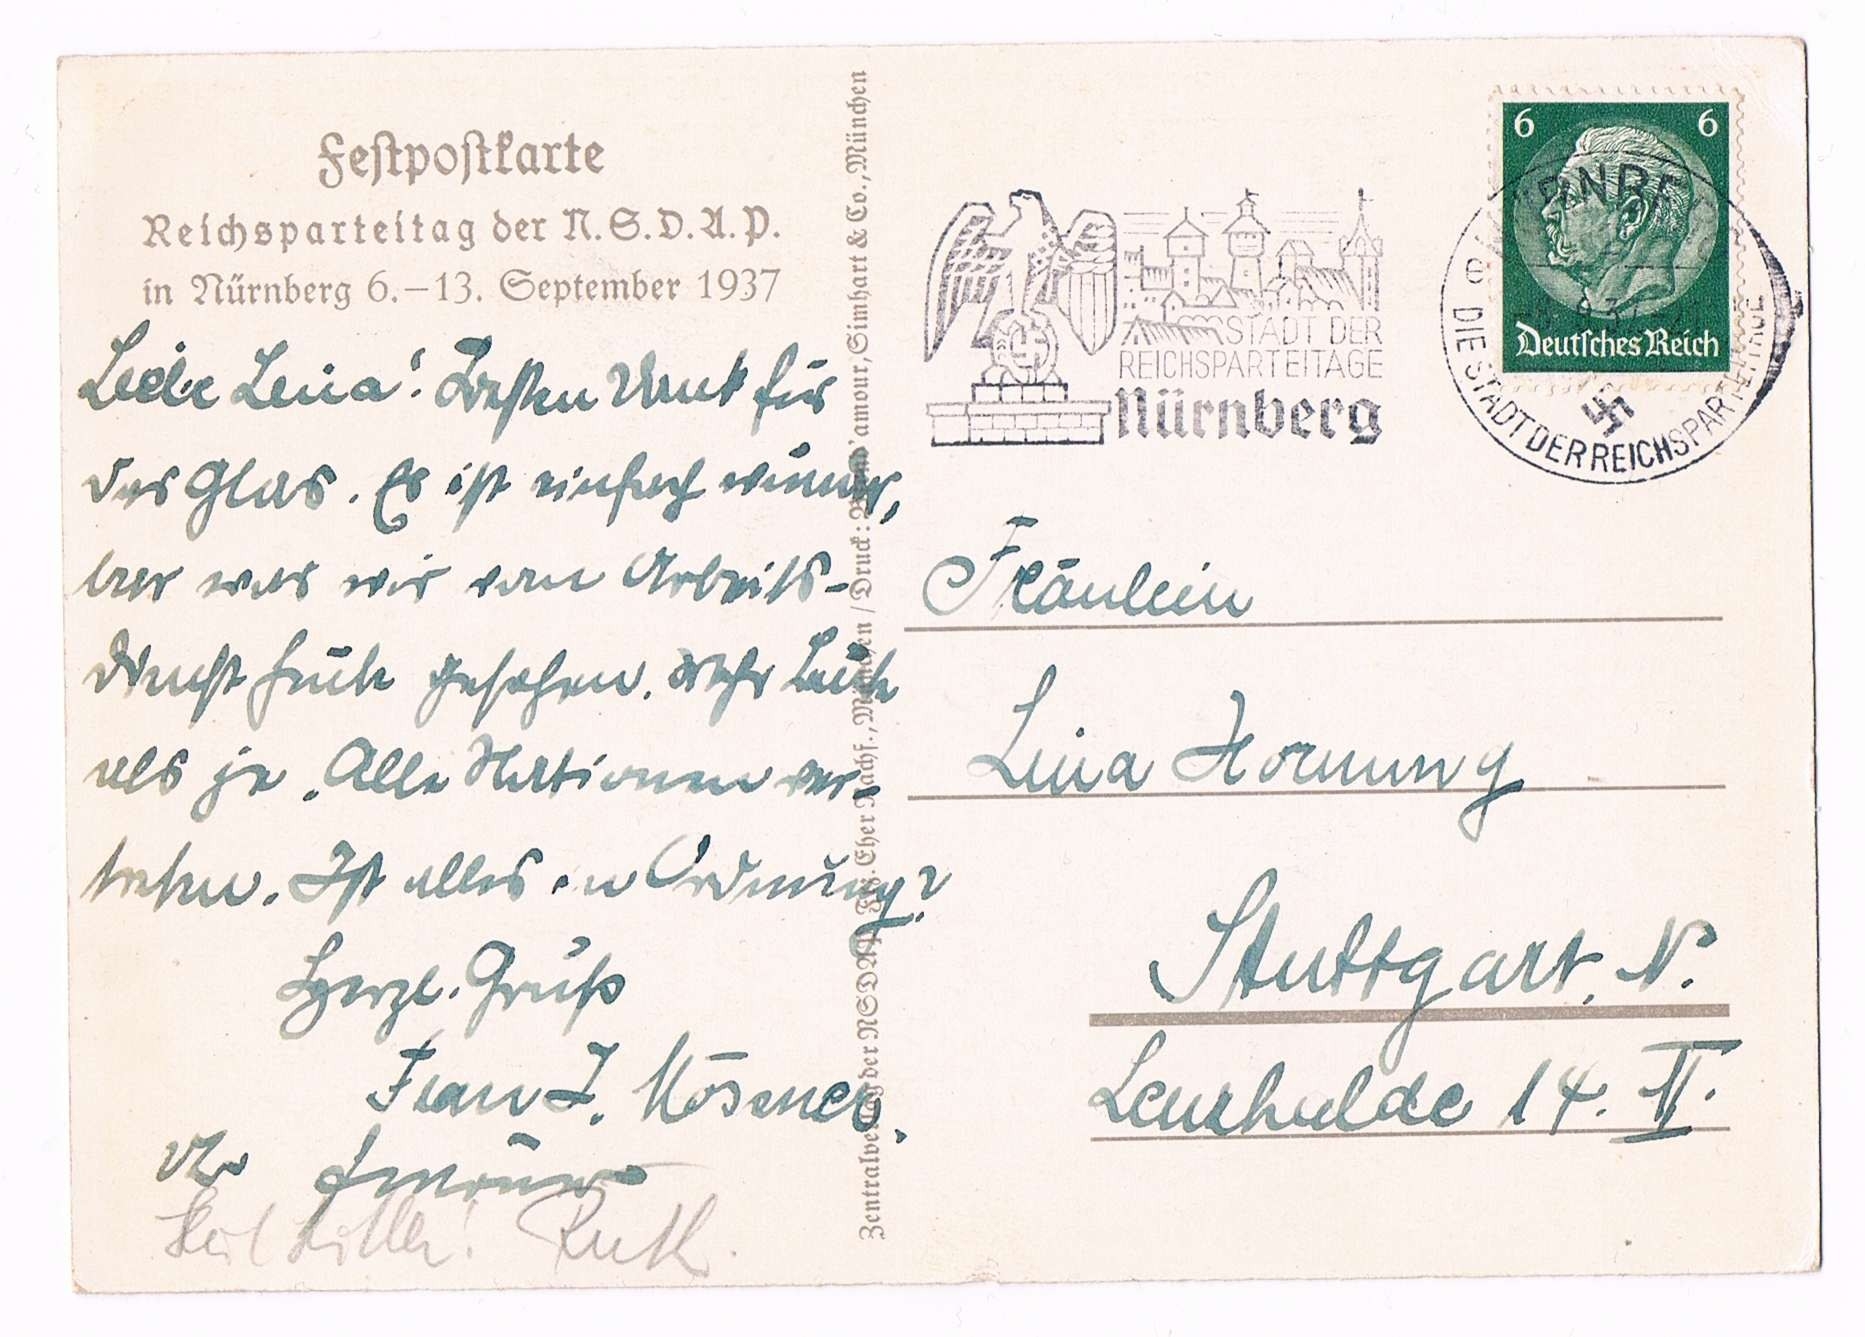 Festpostkarte
Reichsparteitag der N.S.D.A.P.
in Nürnberg 6.–13. September 1937
Liebe Lina! Besten Dank für
das Glas. Es ist einfach wunder,
bar was wir vom Arbeits-
dienst heute gesehen. Mehr Leute
als je. Alle Nationen ver-
treten. Ist alles in Ordnung?
Herzl. Gruß
Frau J. Mösner.
Heil Hitler! Ruth.
Zentralverlag der NSDAP. Frz. Eher Nachf., München / Druck: Wend'amour, Simhart & Co., München
STADT DER
REICHSPARTEITAGE
Nürnberg
6 6
Deutsches Reich
NÜRNBERG
DIE STADT DER REICHSPARTEITAGE
Fräulein
Lina Hornung
Stuttgart. N.
Lenzhalde 14. II.